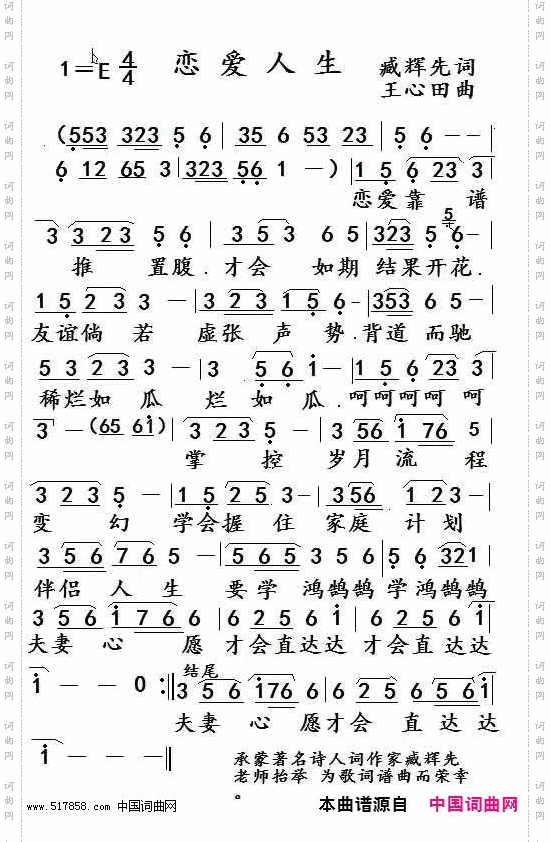 1=♭E 4/4 恋爱人生 臧辉先词
王心田曲
(553 323 5 6 | 35 6 53 23 | 5 6 - - |
6 12 65 3 | 323 56 1 - ) | 1 5 6 23 3 |
恋爱靠 谱
3 3 2 3 5 6 | 3 5 3 6 5 | 323 5 6 - |
推 置腹.才会 如期 结果开花.
1 5 2 3 3 - | 3 2 3 1 5 6 - | 353 6 5 - |
友谊倘 若 虚张 声 势.背道 而驰
5 3 2 3 3 - | 3 5 6 1 - | 1 5 6 23 3 |
稀烂如 瓜 烂如 瓜.呵呵呵呵 呵
3 - (65 61) | 3 2 3 5 - | 3 56 1 76 5 |
掌 控 岁月 流 程
3 2 3 5 - | 1 5 2 5 3 - | 356 1 2 3 - |
变 幻 学会握 住 家庭 计 划
3 5 6 7 6 5 | 5 6 5 3 5 6 | 5 6 321 |
伴侣 人 生 要学 鸿鹄鹄 学鸿鹄鹄
3 5 6 1 7 6 6 | 6 2 5 6 1 | 6 2 5 6 1 |
夫妻 心 愿 才会直达达 才会直达达
1 - - 0 :‖ 3 5 6 176 6 | 6 2 5 6 5 6 1 |
结尾
夫妻 心 愿才会 直 达达
1 - - ‖
承蒙著名诗人词作家臧辉先
老师抬举 为歌词谱曲而荣幸
。
www.517858.com 中国词曲网 本曲谱源自 中国词曲网